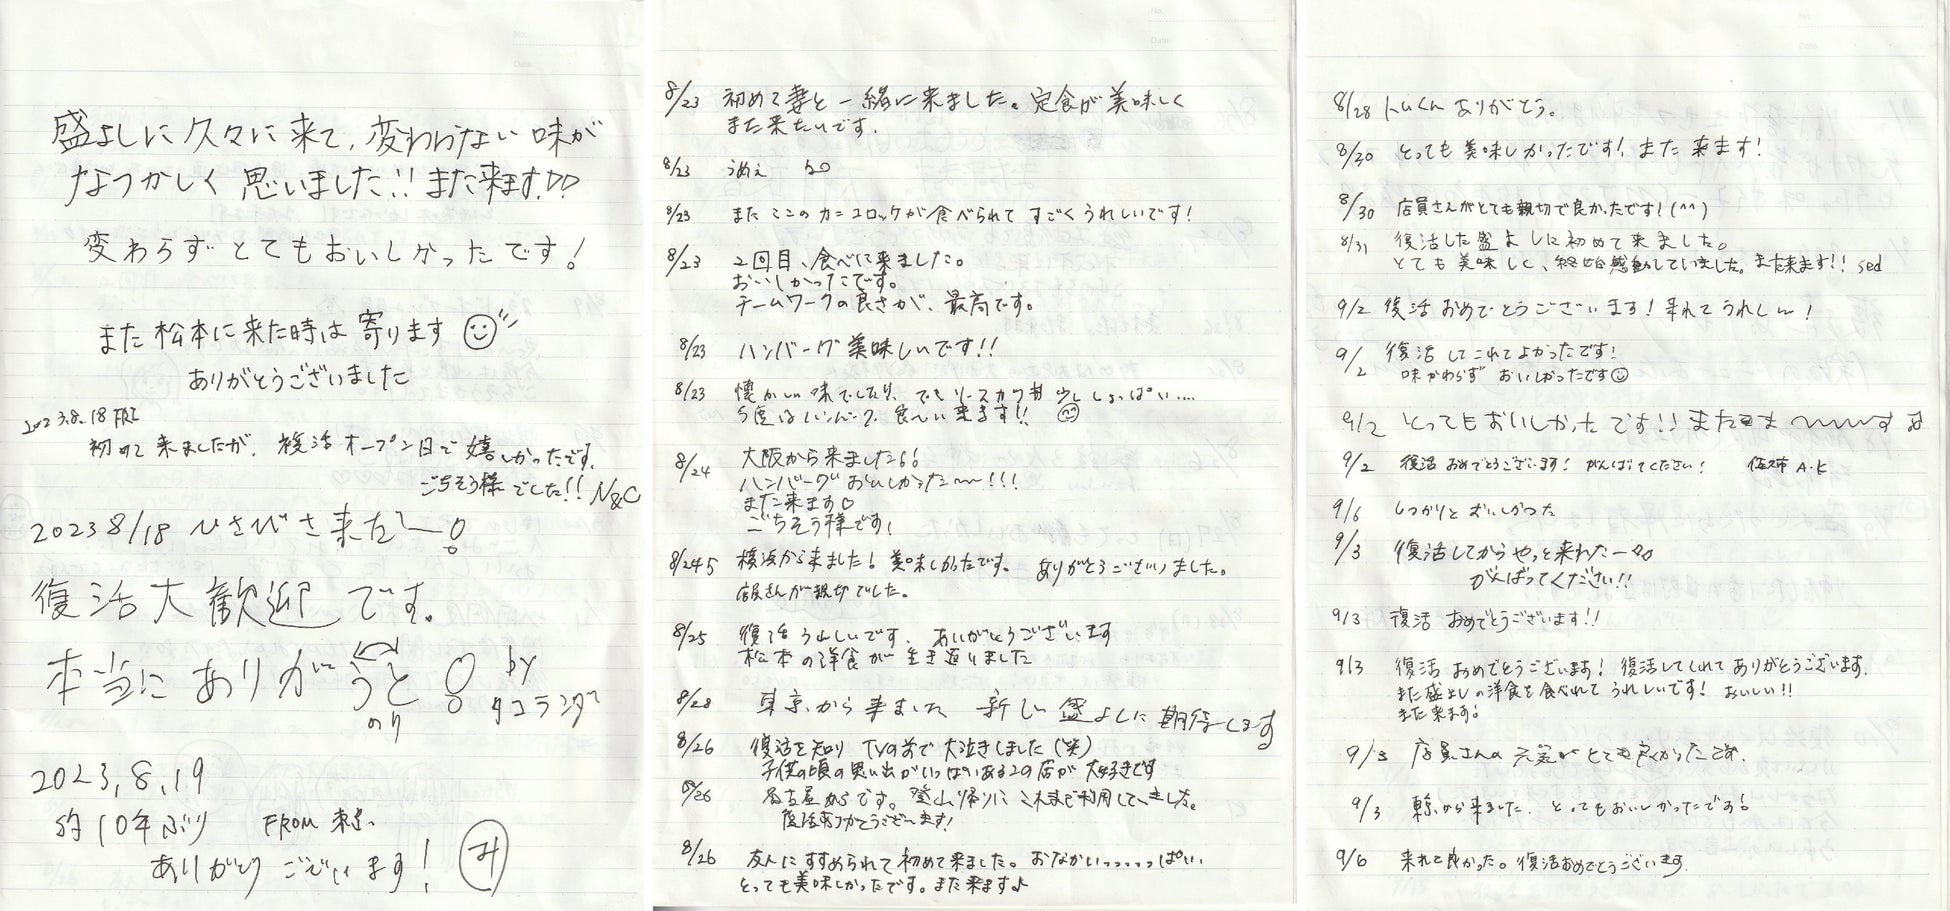 盛よしに久々に来て、変わらない味が
なつかしく思いました!!また来ます!♡♡
変わらずとてもおいしかったです!
また松本に来た時は寄ります
ありがとうございました
2023.8.18 FRI
初めて来ましたが、復活オープン日で嬉しかったです。
ごちそう様でした!! N&C
2023 8/18 ひさびさ来たー!
復活大歓迎です。
本当にありがうと! by
のり タコランダー
2023,8,19
約10年ぶり FROM 東京
ありがとうございます! み
No.
Date
8/23 初めて妻と一緒に来ました。定食が美味しく
また来たいです。
8/23 うめえ
8/23 またここのカニコロッケが食べられてすごくうれしいです!
8/23 2回目、食べに来ました。
おいしかったです。
チームワークの良さが、最高です。
8/23 ハンバーグ美味しいです!!
8/23 懐かしい味でした でもソースカツ丼少ししょっぱい....
今度はハンバーグ食べに来ます!!
8/24 大阪から来ました!!
ハンバーグおいしかった〜!!!
また来ます♡
ごちそう様です!
8/24 横浜から来ました!美味しかったです。ありがとうございました。
店員さんが親切でした。
8/25 復活うれしいです、ありがとうございます
松本の洋食が生き返りました
8/28 東京から来ました 新しい盛よしに期待します
8/26 復活を知りTVの前で大泣きしました(笑)
子供の頃の思い出がいっぱいあるこの店が大好きです
8/26 名古屋からです。登山帰りにこれまで利用していました。
復活ありがとうございます!
8/26 友人にすすめられて初めて来ました。おなかいっっっっっぱい、
とっても美味しかったです。また来ます♪
No.
Date
8/28 トムくんありがとう。
8/30 とっても美味しかったです!また来ます!
8/30 店員さんがとても親切で良かったです!(^^)
8/31 復活した盛よしに初めて来ました。
とても美味しく、終始感動していました。また来ます!! sed
9/2 復活おめでとうございます!来れてうれしー!
9/2 復活してこれてよかったです!
味かわらずおいしかったです
9/2 とってもおいしかったです!!またきま〜〜〜す
9/2 復活おめでとうございます!がんばってください! 佐久市 A・K
9/6 しっかりとおいしかった
9/3 復活してからやっと来れたー
がんばってください!!
9/3 復活おめでとうございます!!
9/3 復活おめでとうございます!復活してくれてありがとうございます。
また盛よしの洋食を食べれてうれしいです!おいしい!!
また来ます!
9/3 店員さんの元気がとても良かったです。
9/3 東京から来ました。とってもおいしかったです!
9/6 来れて良かった。復活おめでとうございます。